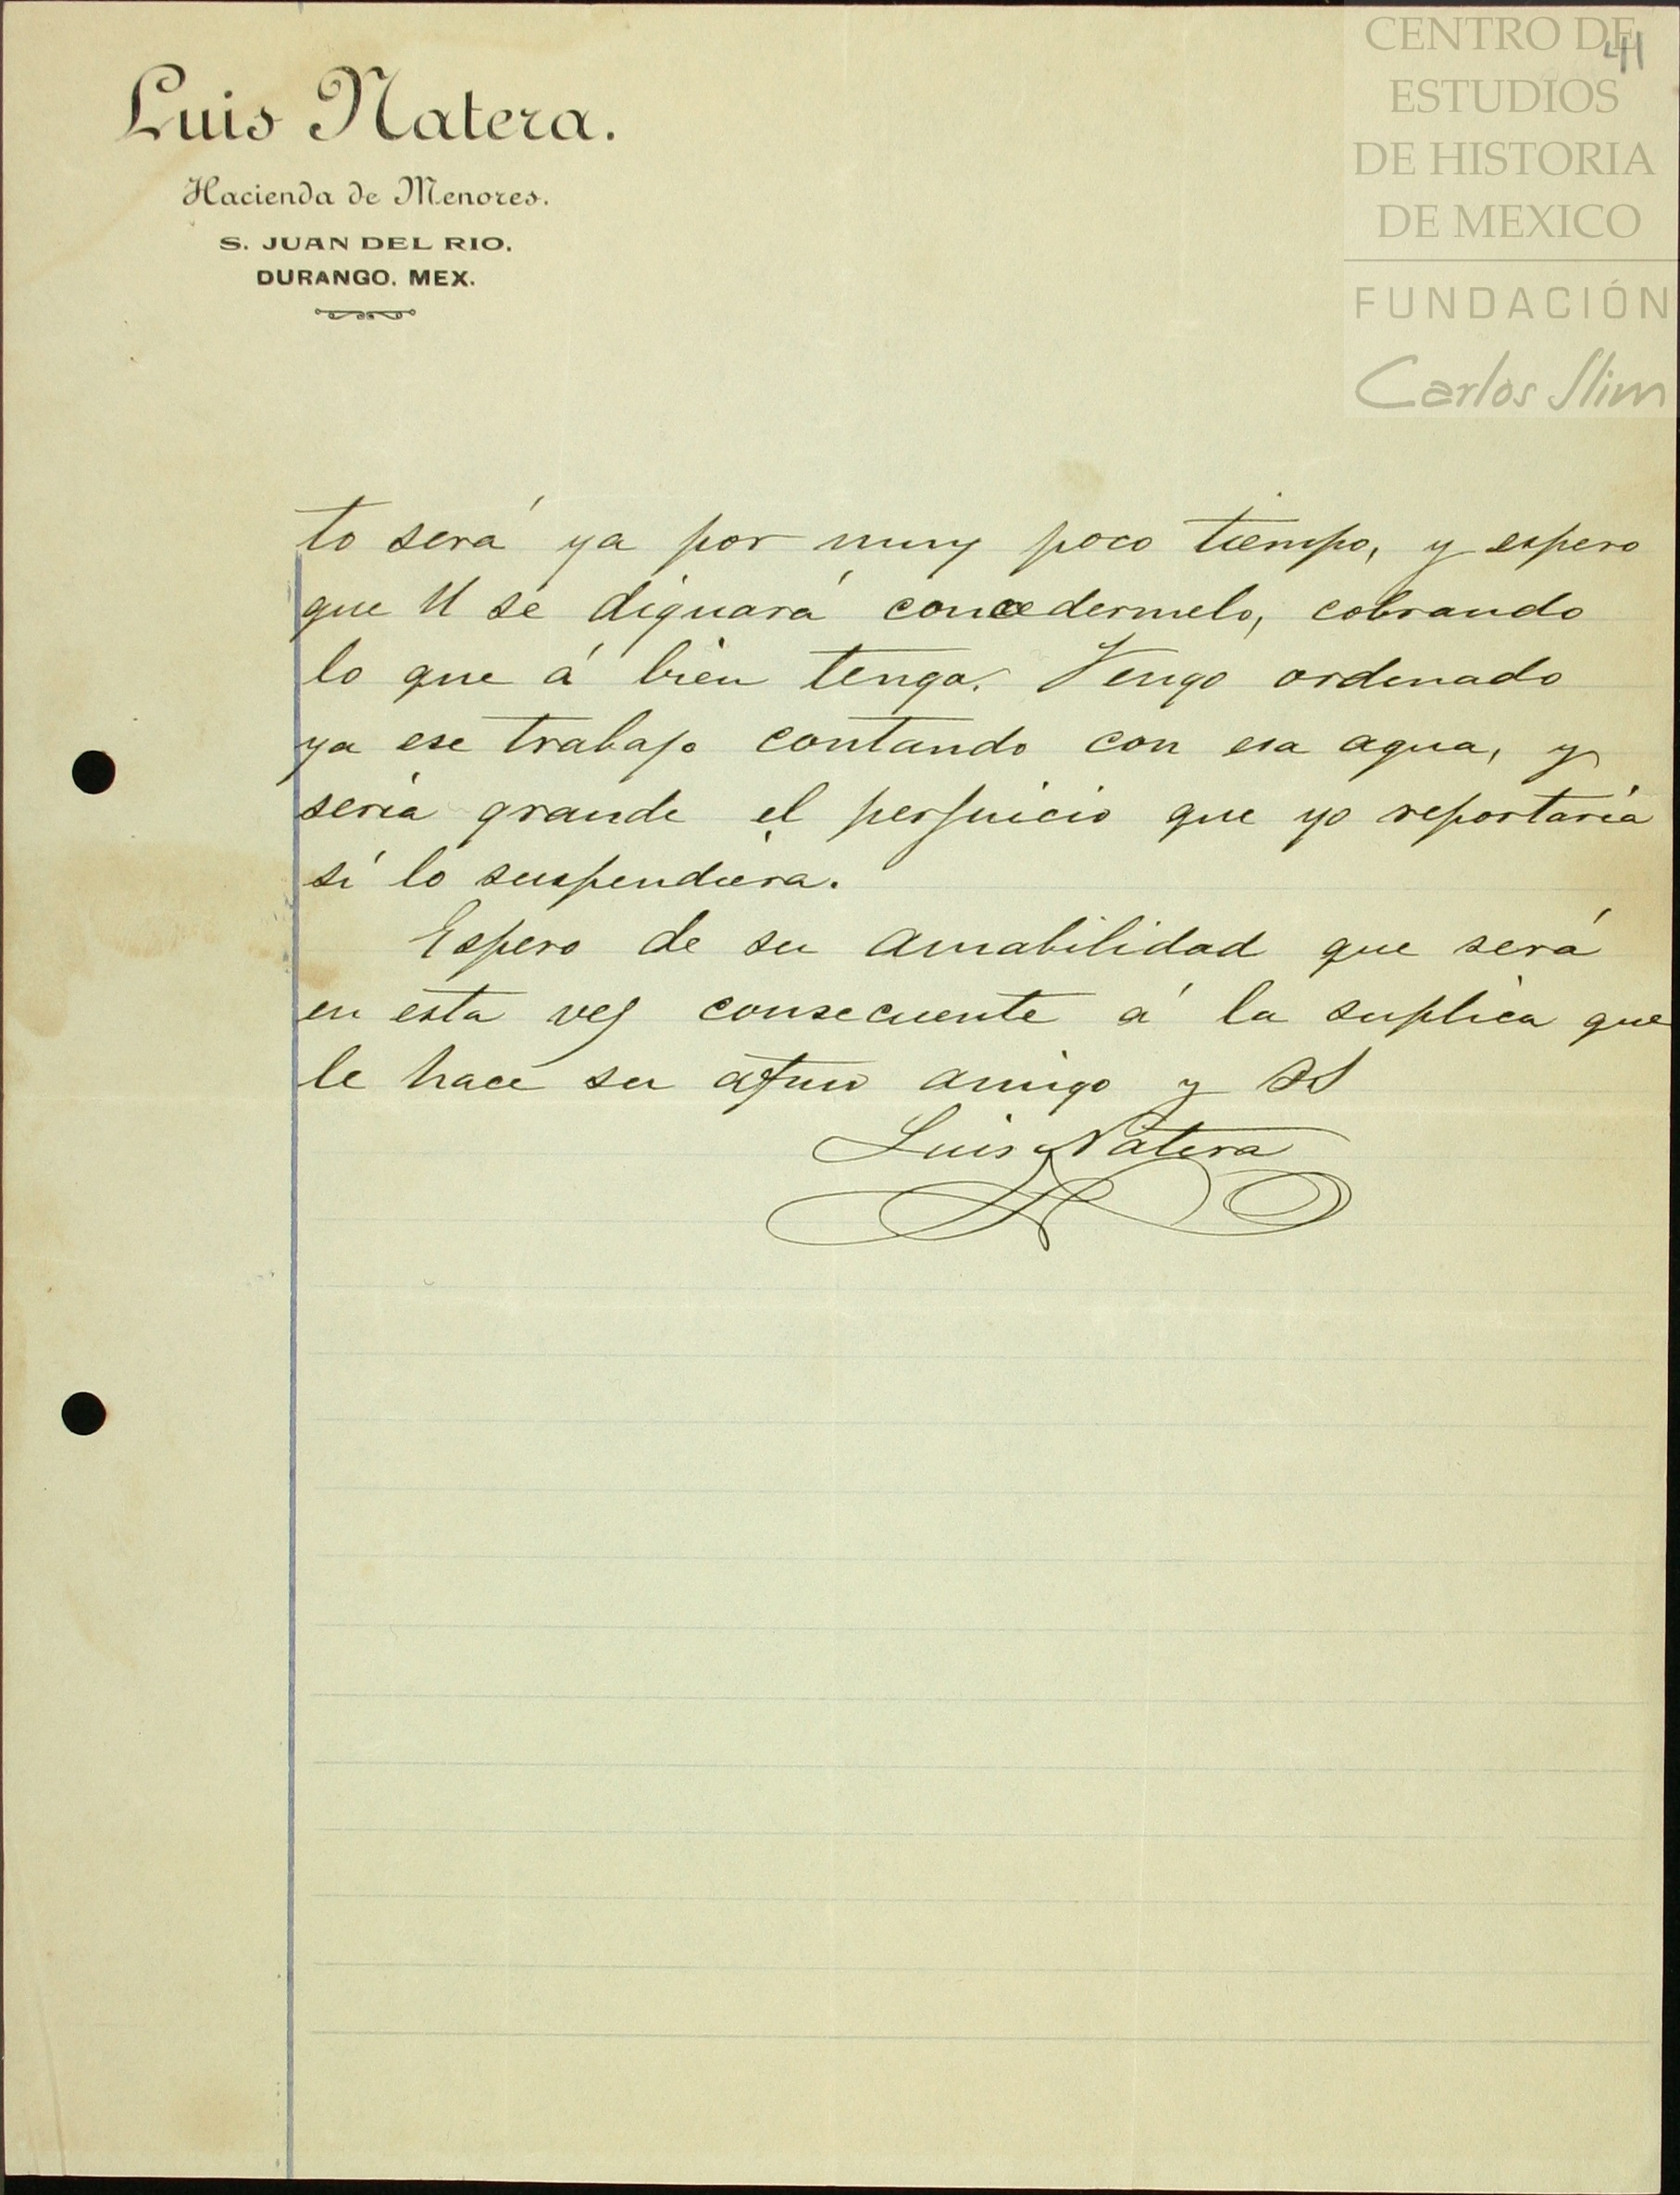 CENTRO DE
ESTUDIOS
DE HISTORIA
DE MEXICO
FUNDACIÓN
Carlos Slim
41
Luis Natera.
Hacienda de Menores.
S. JUAN DEL RIO.
DURANGO. MEX.
to será ya por muy poco tiempo, y espero
que U se dignará concedermelo, cobrando
lo que á bien tenga. Tengo ordenado
ya ese trabajo contando con esa agua, y
seria grande el perjuicio que yo reportaria
si lo suspendiera.
Espero de su amabilidad que será
en esta vez consecuente á la suplica que
le hace su afmo amigo y SS
Luis Natera